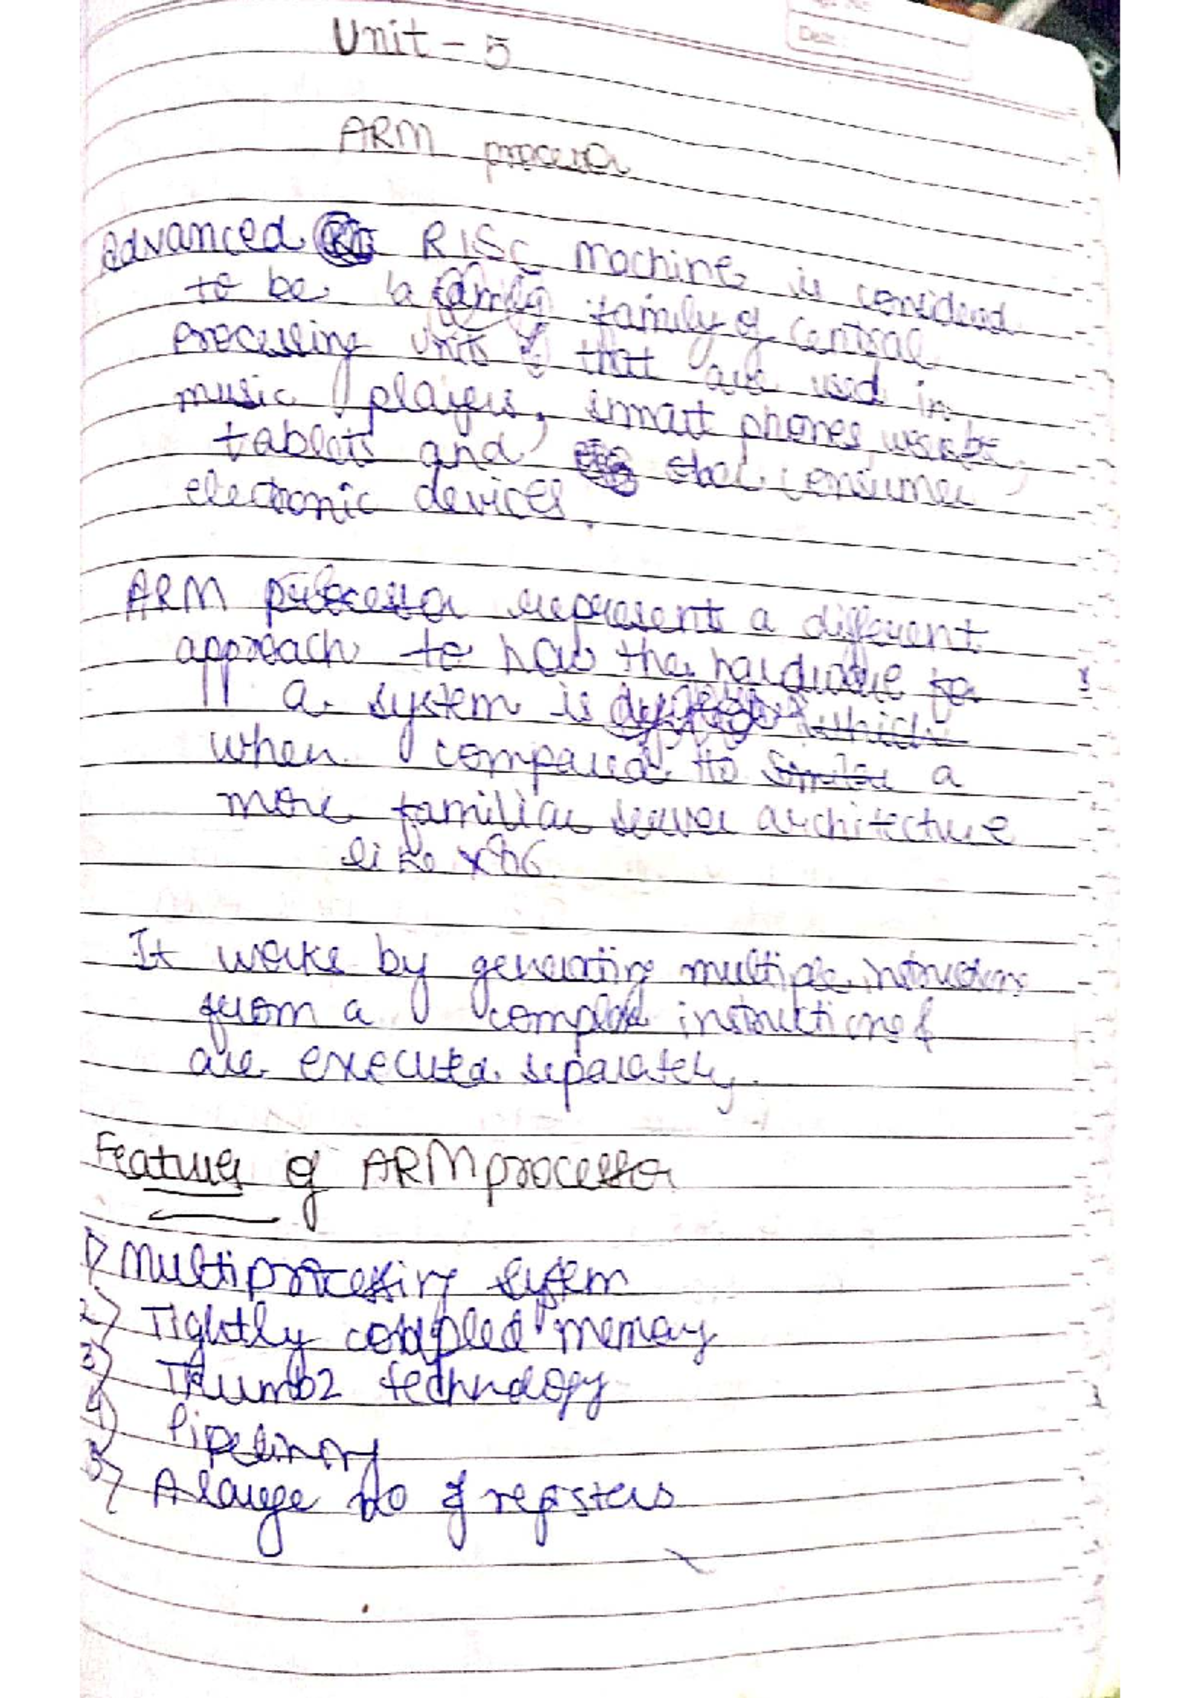 Date:
Unit - 5
ARM processor
Advanced RISC Machine is considerd
to be a family of Central
Processing Units that are used in
music players, smart phones,
tablets and other consumer
electronic devices.
ARM processor represents a different
approach to how the hardware for
a system is
when compared to a
more familiar server architecture
like x86.
It works by generating multiple instructions
from a complex instruction &
are executed separately.
Features of ARM processor
1) Multiprocessing system
2) Tightly coupled memory
3) Thumb2 technology
4) Pipelining
5) A large no of registers